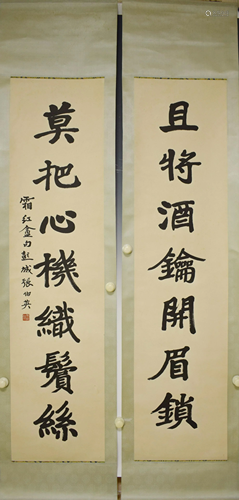 且将酒鑰開眉鎖
莫把心機織鬢絲
霜紅盦力彭城張伯英